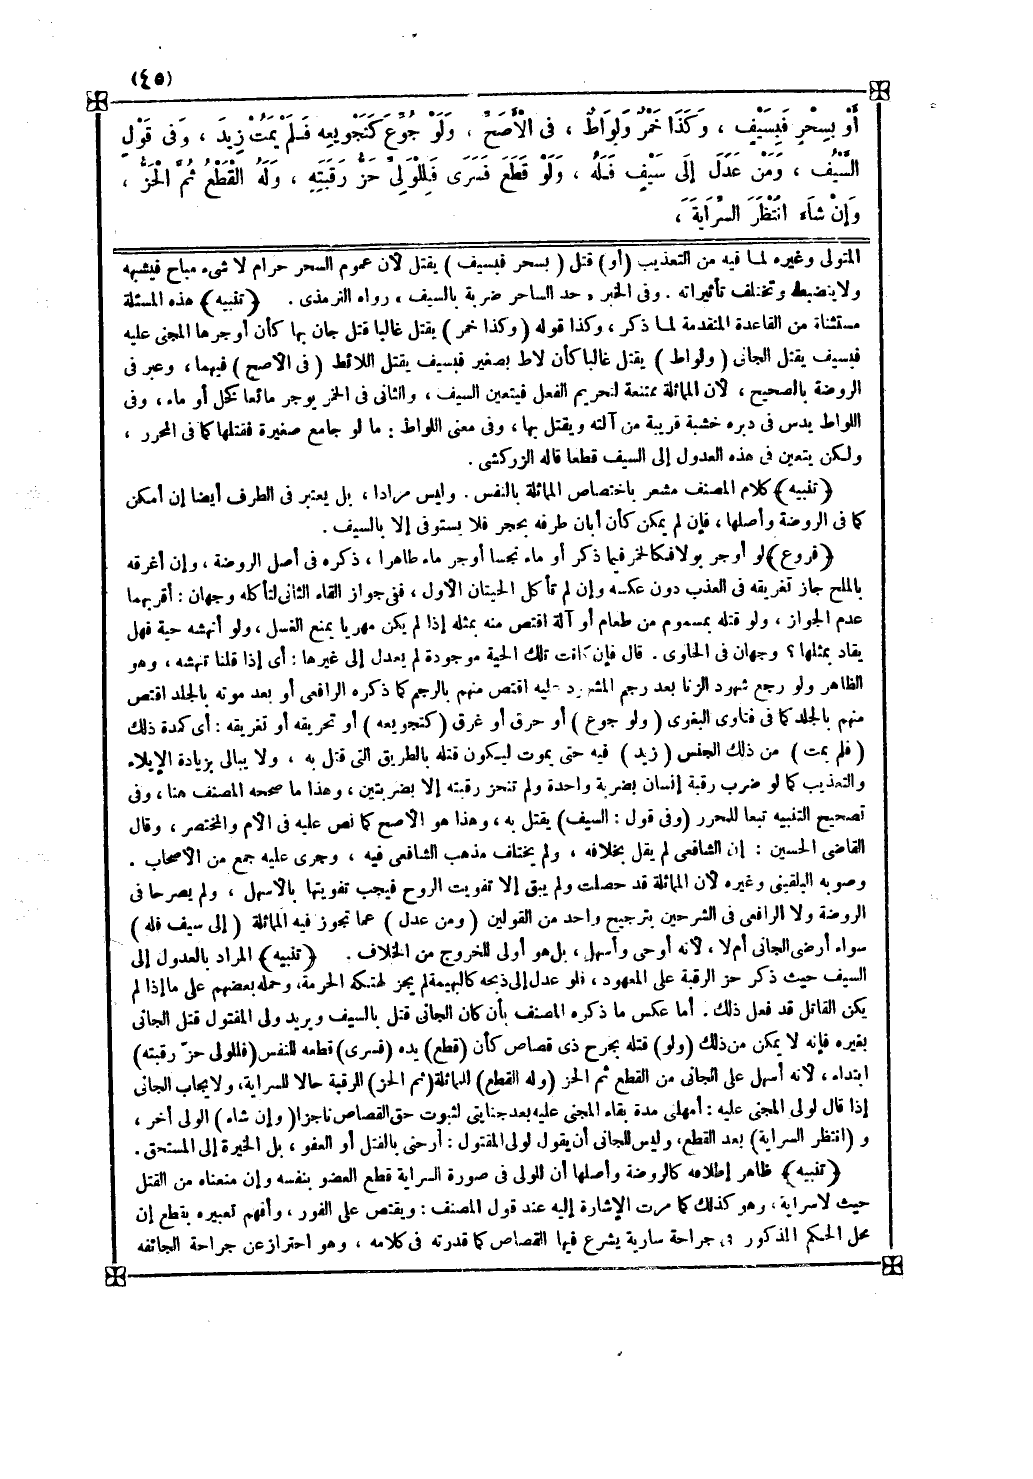 (٤٥)
أَوْ بِسِحْرٍ فَبِسَيْفٍ ، وَكَذَا خَمْرٌ وَلِوَاطٌ ، فى الْأَصَحِّ ، وَلَوْ جُوِّعَ كَتَجْوِيعِهِ فَلَمْ يَمُتْ زِيدَ ، وَفى قَوْلٍ
السَّيْفُ ، وَمَنْ عَدَلَ إِلَى سَيْفٍ فَلَهُ ، وَلَوْ قَطَعَ فَسَرَى فَلِلْوَلِىِّ حَزُّ رَقَبَتِهِ ، وَلَهُ الْقَطْعُ ثُمَّ الْحَزُّ ،
وَإِنْ شَاءَ انْتَظَرَ السِّرَايَةَ ،
المتولى وغيره لما فيه من التعذيب (أو) قتل ( بسحر فبسيف ) يقتل لأن عموم السحر حرام لا شىء مباح فيشبهه
ولا ينضبط وتختلف تأثيراته . وفى الخبر « حد الساحر ضربة بالسيف » رواه الترمذى . (تنبيه) هذه المسئلة
مستثناة من القاعدة المتقدمة لما ذكر ، وكذا قوله (وكذا خمر ) يقتل غالبا قتل جان بها كأن أوجرها المجنى عليه
فبسيف يقتل الجانى ( ولواط ) يقتل غالبا كأن لاط بصغير فبسيف يقتل اللائط ( فى الأصح ) فيهما ، وعبر فى
الروضة بالصحيح ، لأن المماثلة ممتنعة لتحريم الفعل فيتعين السيف ، والثانى فى الخمر يوجر مائعا كخل أو ماء ، وفى
اللواط يدس فى دبره خشبة قريبة من آلته ويقتل بها ، وفى معنى اللواط : ما لو جامع صغيرة فقتلها كما فى المحرر ،
ولكن يتعين فى هذه العدول إلى السيف قطعا قاله الزركشى .
(تنبيه) كلام المصنف مشعر باختصاص المماثلة بالنفس . وليس مرادا ، بل يعتبر فى الطرف أيضا إن أمكن
كما فى الروضة وأصلها ، فإن لم يمكن كأن أبان طرفه بحجر فلا يستوفى إلا بالسيف .
(فروع) لو أوجر بولا فكالخمر فيما ذكر أو ماء نجسا أوجر ماء طاهرا ، ذكره فى أصل الروضة ، وإن أغرقه
بالملح جاز تغريقه فى العذب دون عكسه وإن لم تأكل الحيتان الأول ، ففى جواز القاء الثانى لتأكله وجهان : أقربهما
عدم الجواز ، ولو قتله بمسموم من طعام أو آلة اقتص منه بمثله إذا لم يكن مهريا يمنع الغسل ، ولو أنهشه حية فهل
يقاد بمثلها ؟ وجهان فى الحاوى . قال فإن كانت تلك الحية موجودة لم يعدل إلى غيرها : أى إذا قلنا تنهشه ، وهو
الظاهر ولو رجع شهود الزنا بعد رجم المشهود عليه اقتص منهم بالرجم كما ذكره الرافعى أو بعد موته بالجلد اقتص
منهم بالجلد كما فى فتاوى البغوى ( ولو جوع ) أو حرق أو غرق ( كتجويعه ) أو تحريقه أو تغريقه : أى كمدة ذلك
( فلم يمت ) من ذلك الجنس ( زيد ) فيه حتى يموت ليكون قتله بالطريق التى قتل به ، ولا يبالى بزيادة الإيلام
والتعذيب كما لو ضرب رقبة إنسان بضربة واحدة ولم تنحز رقبته إلا بضربتين ، وهذا ما صححه المصنف هنا ، وفى
تصحيح التنبيه تبعا للمحرر (وفى قول : السيف) يقتل به ، وهذا هو الأصح كما نص عليه فى الأم والمختصر ، وقال
القاضى الحسين : إن الشافعى لم يقل بخلافه ، ولم يختلف مذهب الشافعى فيه ، وجرى عليه جمع من الأصحاب .
وصوبه البلقينى وغيره لأن المماثلة قد حصلت ولم يبق إلا تفويت الروح فيجب تفويتها بالأسهل ، ولم يصرحا فى
الروضة ولا الرافعى فى الشرحين بترجيح واحد من القولين ( ومن عدل ) عما تجوز فيه المماثلة ( إلى سيف فله )
سواء أرضى الجانى أم لا ، لأنه أوحى وأسهل ، بل هو أولى للخروج من الخلاف . (تنبيه) المراد بالعدول إلى
السيف حيث ذكر حز الرقبة على المعهود ، فلو عدل إلى ذبحه كالبهيمة لم يجز لهتكه الحرمة، وحمله بعضهم على ما إذا لم
يكن القاتل قد فعل ذلك . أما عكس ما ذكره المصنف بأن كان الجانى قتل بالسيف ويريد ولى المقتول قتل الجانى
بغيره فإنه لا يمكن من ذلك (ولو) قتله بجرح ذى قصاص كأن (قطع) يده (فسرى) قطعه للنفس (فللولى حزّ رقبته)
ابتداء ، لأنه أسهل على الجانى من القطع ثم الحز (وله القطع) للمماثلة (ثم الحز) للرقبة حالا للسراية، ولا يجاب الجانى
إذا قال لولى المجنى عليه : أمهلنى مدة بقاء المجنى عليه بعد جنايتى لثبوت حق القصاص ناجزا ( وإن شاء ) الولى أخر ،
و (انتظر السراية) بعد القطع، وليس للجانى أن يقول لولى المقتول : أرحنى بالقتل أو العفو ، بل الخيرة إلى المستحق .
(تنبيه) ظاهر إطلاقه كالروضة وأصلها أن للولى فى صورة السراية قطع العضو بنفسه وإن منعناه من القتل
حيث لا سراية ، وهو كذلك كما مرت الإشارة إليه عند قول المصنف : ويقتص على الفور ، وأفهم تعبيره بقطع إن
محل الحكم المذكور فى جراحة سارية يشرع فيها القصاص كما قدرته فى كلامه ، وهو احتراز عن جراحة الجائفه